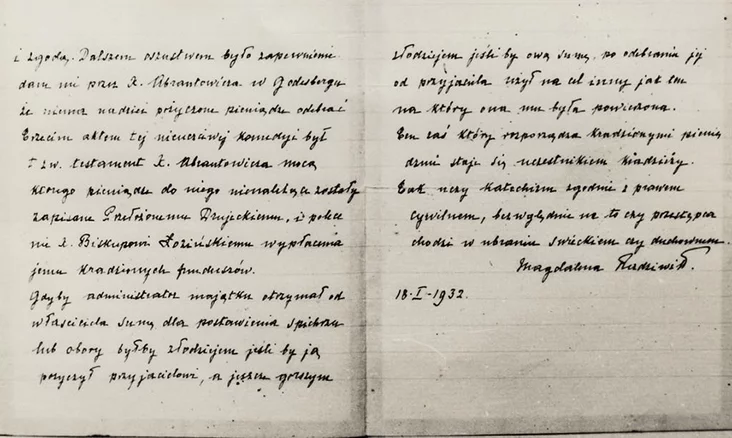 i zgodą. Dalszem oszustwem było zapewnienie
dane mi przez X. Abrantowicza w Godesbergu
że niema nadziei pożyczone pieniądze odebrać
Trzecim aktem tej nieuczciwej komedyi był
t zw. testament X. Abrantowicza mocą
którego pieniądze do niego nienależące zostały
zapisane Przełożonemu i polece
nie X. Biskupowi Łozińskiemu wypłacenia
jemu kradzionych funduszów.
Gdyby administrator majątku otrzymał od
właściciela sumę dla postawienia spichrzu
lub obory byłby złodziejem jeśli by ją
pożyczył przyjacielowi, a jeszcze gorszym
złodziejem jeśli by ową sumę po odebraniu jej
od przyjaciela użył na cel inny jak ten
na który ona mu była powierzona.
Ten zaś który rozporządza kradzionymi pienię
dzmi staje się uczestnikiem kradzieży.
Tak uczy Katechizm zgodnie z prawem
cywilnem, bezwględnie na to czy przestępca
chodzi w ubraniu świeckiem czy duchownem.
Magdalena Radziwiłł.
18-I-1932.